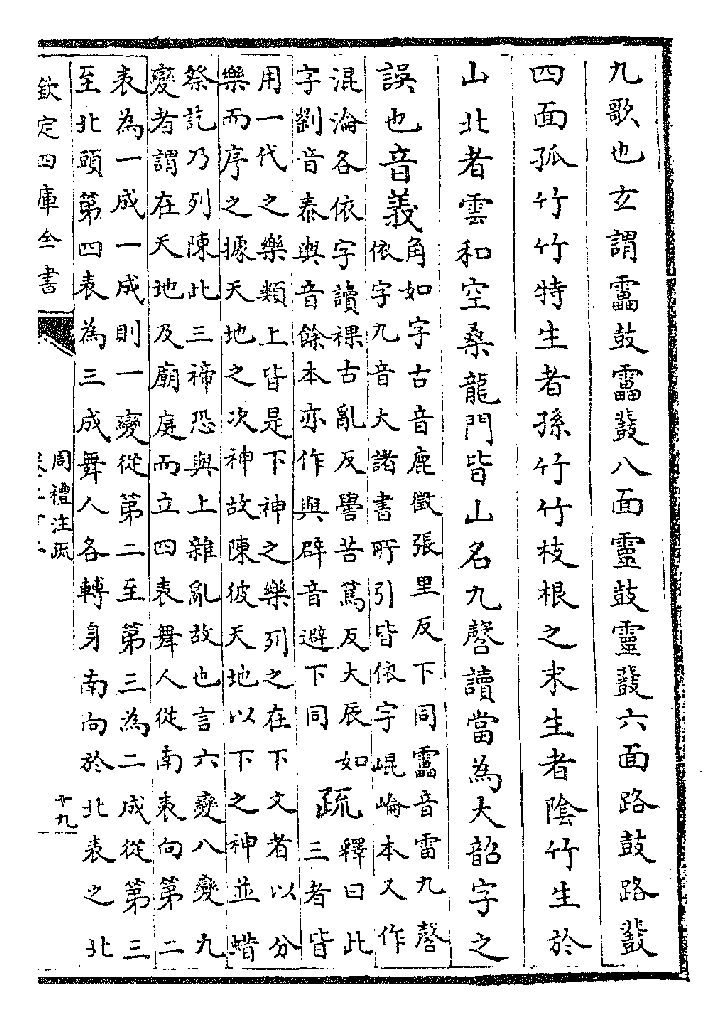 九歌也玄謂靁鼓靁鼗八面靈鼓靈鼗六面路鼓路鼗
四面孤竹竹特生者孫竹竹枝根之末生者陰竹生於
山北者雲和空桑龍門皆山名九磬讀當為大韶字之
誤也音義
角如字古音鹿徵張里反下同靁音雷九磬
依字九音大諸書所引皆依字崐崘本又作
混淪各依字讀祼古亂反嚳苦篤反大辰如
字劉音泰與音餘本亦作與辟音避下同
疏
釋曰此
三者皆
用一代之樂類上皆是下神之樂列之在下文者以分
樂而序之據天地之次神故陳彼天地以下之神並蜡
祭訖乃列陳此三禘恐與上雜亂故也言六變八變九
變者謂在天地及廟庭而立四表舞人從南表向第二
表為一成一成則一變從第二至第三為二成從第三
至北頭第四表為三成舞人各轉身南向於北表之北
欽定四庫全書
周禮注疏
十九